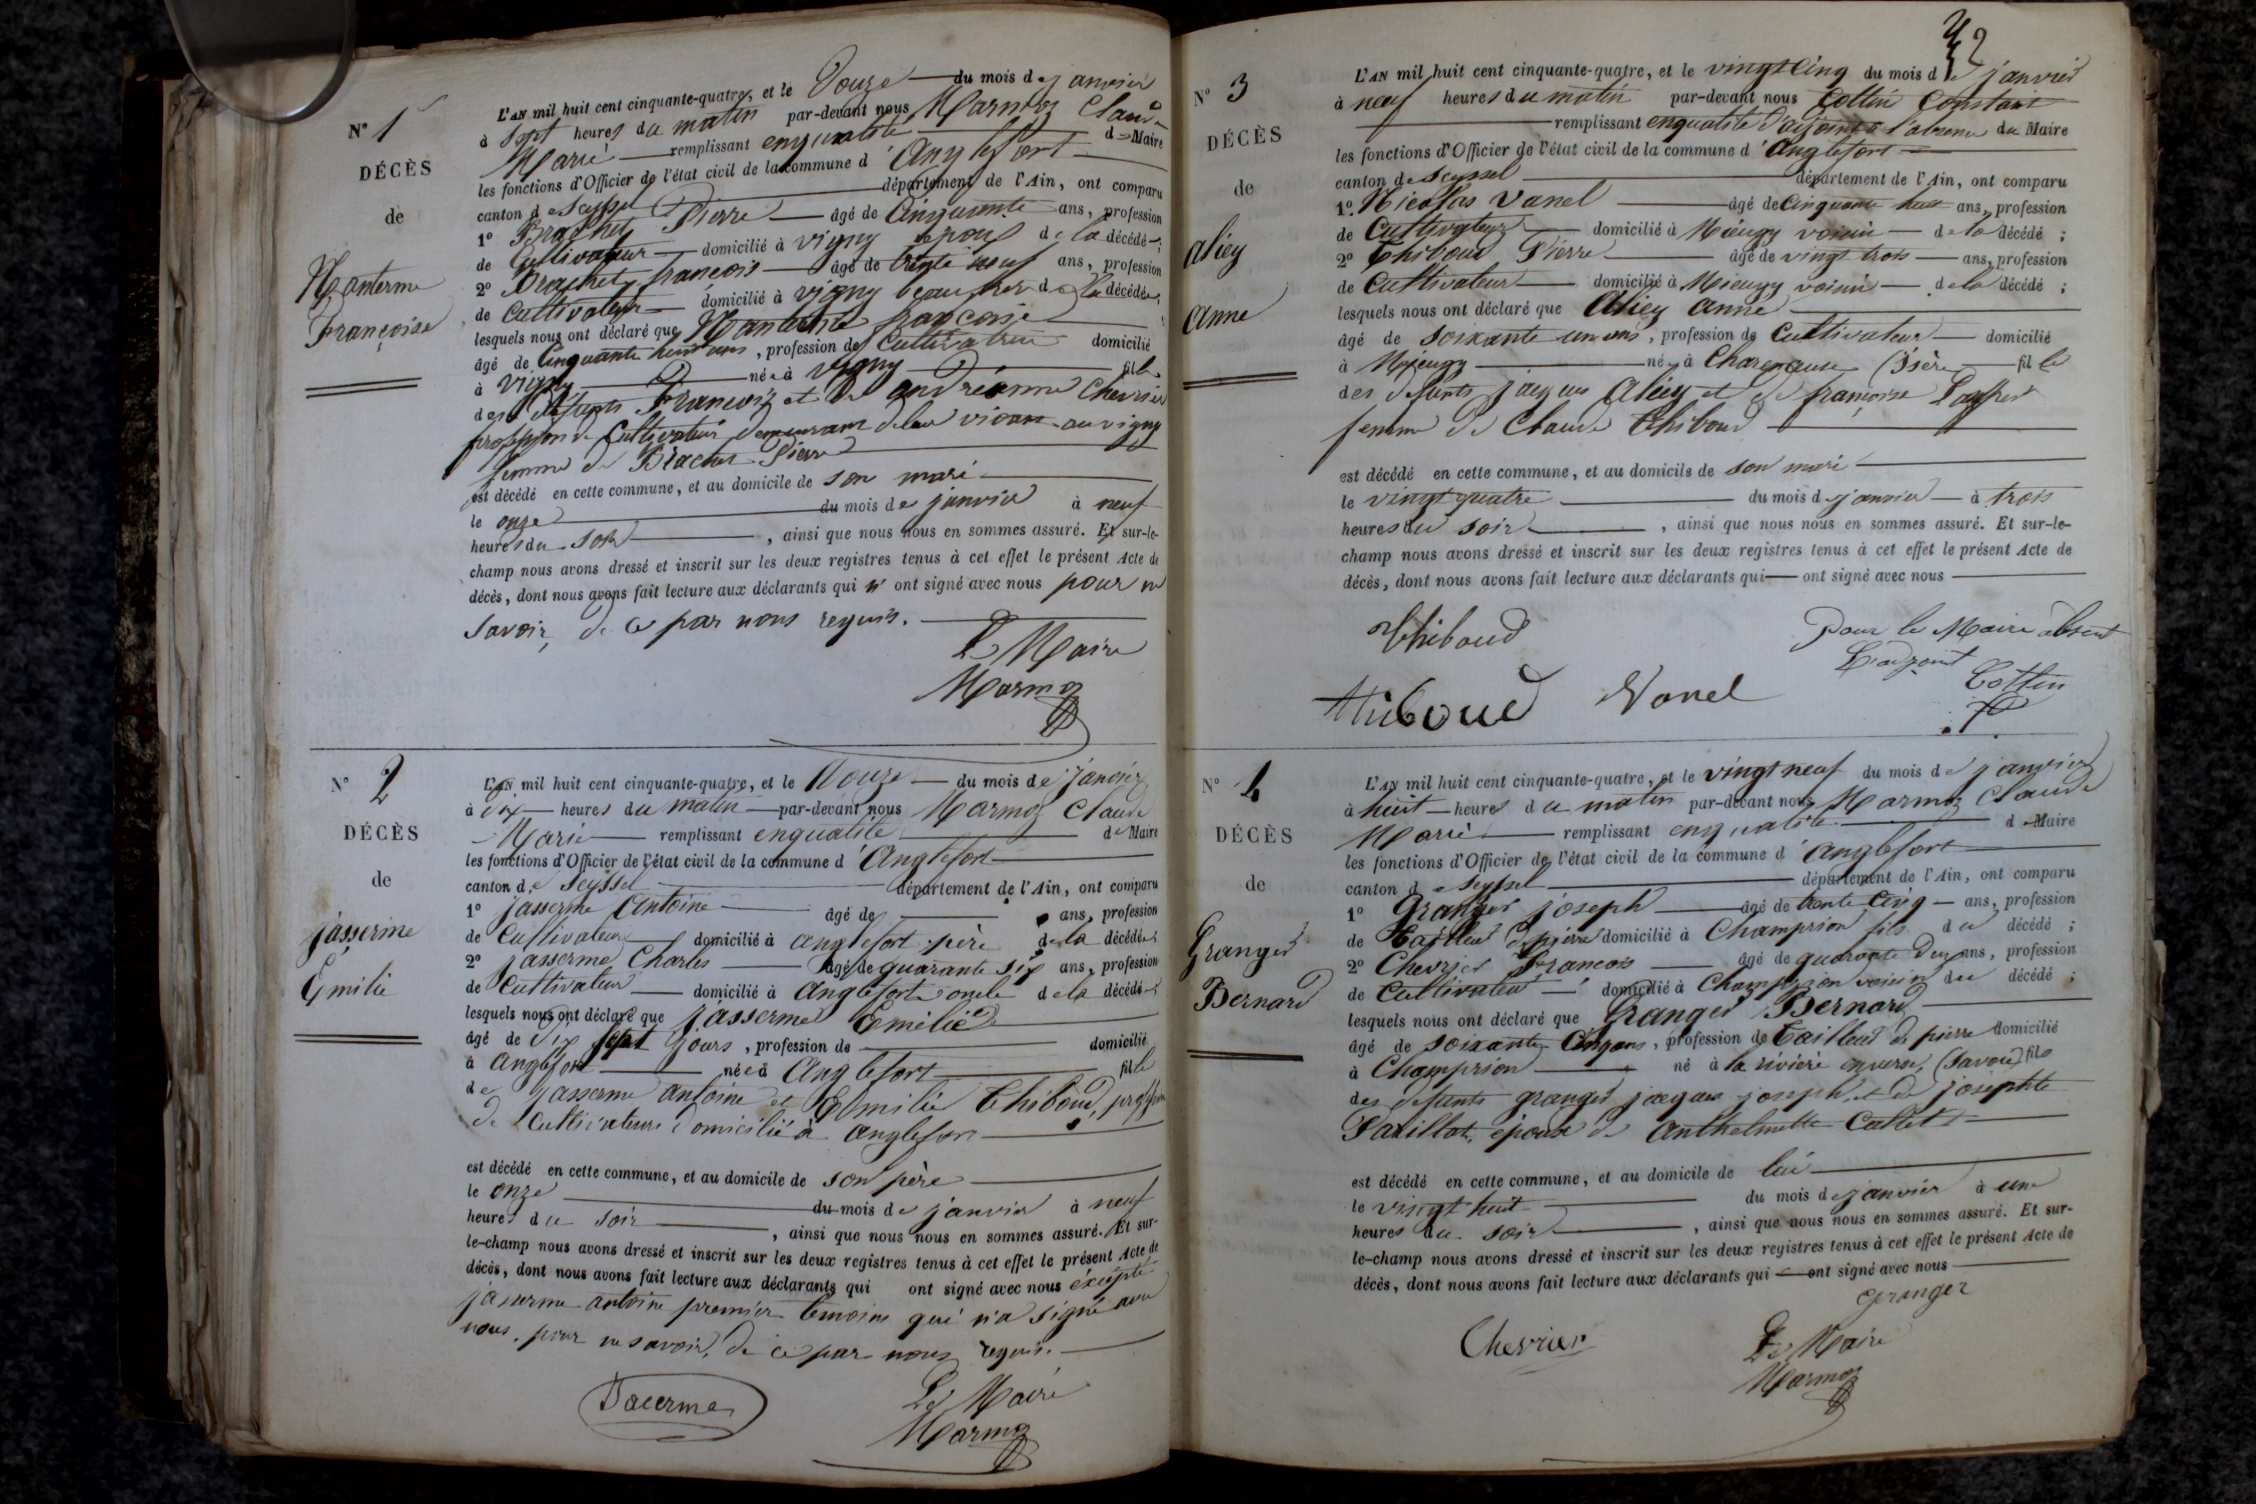 N° 1
DÉCÈS
de
Manterme
Françoise
L'AN mil huit cent cinquante-quatre, et le Douze du mois de janvier
à Sept heures du matin par-devant nous Marmoz Claude
Marie remplissant en qualité de Maire
les fonctions d'Officier de l'état civil de la commune d'Anglefort
canton de Seyssel département de l'Ain, ont comparu
1° Brachet Pierre âgé de Cinquante ans, profession
de Cultivateur domicilié à vigny époux de la décédée;
2° Brachet françois âgé de trente neuf ans, profession
de Cultivateur domicilié à vigny beau frère de la décédée;
lesquels nous ont déclaré que Manterme françoise
âgé de Cinquante huit ans, profession de Cultivatrice domicilié
à Vigny née à Vigny fille
des défunts François et de andréanne Chevrier
profession de Cultivateur demeurant de leur vivant au vigny
femme de Brachet Pierre
est décédé en cette commune, et au domicile de son mari
le onze du mois de janvier à neuf
heures du soir, ainsi que nous nous en sommes assuré. Et sur-le-
champ nous avons dressé et inscrit sur les deux registres tenus à cet effet le présent Acte de
décès, dont nous avons fait lecture aux déclarants qui n'ont signé avec nous pour ne
Savoir, de ce par nous requis.
Le Maire
Marmoz
N° 2
DÉCÈS
de
jasserme
Emilie
L'AN mil huit cent cinquante-quatre, et le Douze du mois de janvier
à dix heures du matin par-devant nous Marmoz Claude
Marie remplissant en qualité de Maire
les fonctions d'Officier de l'état civil de la commune d'Anglefort
canton de Seyssel département de l'Ain, ont comparu
1° jasserme Antoine âgé de ans, profession
de Cultivateur domicilié à anglefort père de la décédée;
2° jasserme Charles âgé de quarante six ans, profession
de Cultivateur domicilié à Anglefort oncle de la décédée;
lesquels nous ont déclaré que jasserme Emilie
âgé de Dix Sept jours, profession de domicilié
à Anglefort née à Anglefort fille
de jasserme antoine et Emilie Thiboud, profession
de Cultivateurs domicilié à anglefort
est décédé en cette commune, et au domicile de son père
le onze du mois de janvier à neuf
heures du soir, ainsi que nous nous en sommes assuré. Et sur-
le-champ nous avons dressé et inscrit sur les deux registres tenus à cet effet le présent Acte de
décès, dont nous avons fait lecture aux déclarants qui ont signé avec nous excepté
jasserme antoine premier temoins qui n'a signé avec
nous, pour ne savoir, de ce par nous requis.
Jacerme
Le Maire
Marmoz
N° 3
DÉCÈS
de
aliey
anne
L'AN mil huit cent cinquante-quatre, et le vingt cinq du mois de janvier
à neuf heures du matin par-devant nous Cottin Constant
remplissant en qualité d'adjoint à l'absence du Maire
les fonctions d'Officier de l'état civil de la commune d'Anglefort
canton de Seyssel département de l'Ain, ont comparu
1° Nicollas Vanel âgé de Cinquante huit ans, profession
de Cultivateur domicilié à Mieugy voisin de la décédé;
2° Thiboud Pierre âgé de vingt trois ans, profession
de Cultivateur domicilié à Mieugy voisin de la décédé;
lesquels nous ont déclaré que Aliey anne
âgé de soixante un ans, profession de Cultivateur domicilié
à Mieugy né à (isère fille
des défunts jacques Aliey et de françoise
femme de Claude Thiboud
est décédé en cette commune, et au domicile de son mari
le vingt quatre du mois de janvier à trois
heures du soir, ainsi que nous nous en sommes assuré. Et sur-le-
champ nous avons dressé et inscrit sur les deux registres tenus à cet effet le présent Acte de
décès, dont nous avons fait lecture aux déclarants qui ont signé avec nous
Thiboud
Pour le Maire absent
L'adjoint
Cottin
Thiboud
Vanel
N° 4
DÉCÈS
de
Granger
Bernard
L'AN mil huit cent cinquante-quatre, et le vingt neuf du mois de janvier
à huit heures du matin par-devant nous Marmoz Claude
Marie remplissant en qualité de Maire
les fonctions d'Officier de l'état civil de la commune d'anglefort
canton de Seyssel département de l'Ain, ont comparu
1° Granger joseph âgé de trente Cinq ans, profession
de Tailleur de pierre domicilié à Champrion fils du décédé;
2° Chevrier François âgé de quarante Deux ans, profession
de Cultivateur domicilié à Champrion voisin du décédé;
lesquels nous ont déclaré que Granger Bernard
âgé de soixante Cinq ans, profession de Tailleur de pierre domicilié
à Champrion né à la rivière enverse (Savoie) fils
des défunts granger jacques joseph et de josephte
époux de Anthelmette Callet
est décédé en cette commune, et au domicile de lui
le vingt huit du mois de janvier à une
heures du soir, ainsi que nous nous en sommes assuré. Et sur-
le-champ nous avons dressé et inscrit sur les deux registres tenus à cet effet le présent Acte de
décès, dont nous avons fait lecture aux déclarants qui ont signé avec nous
Granger
Chevrier
Le Maire
Marmoz